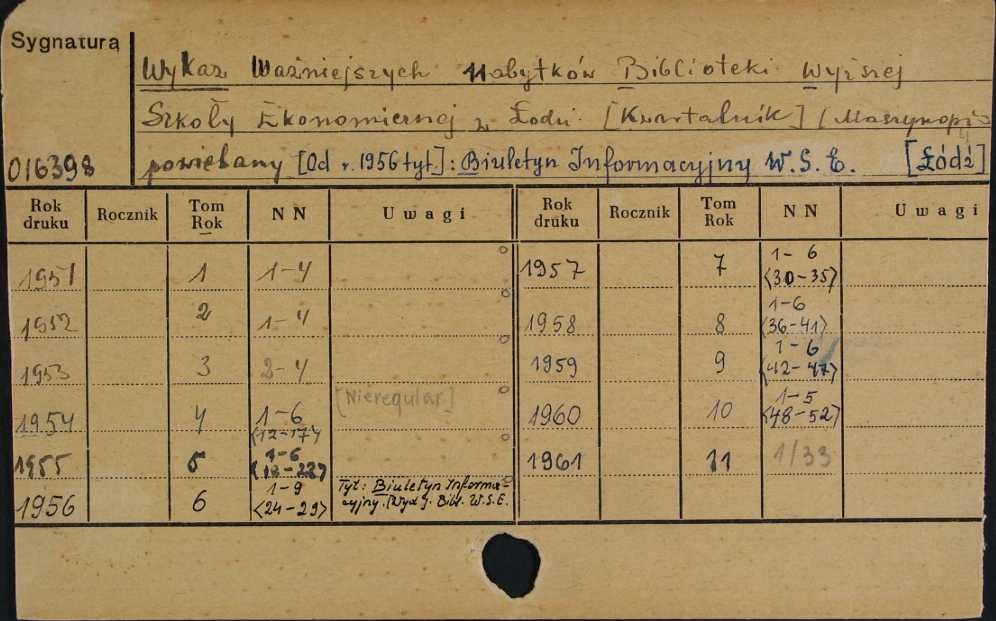 Sygnatura
Wykaz Ważniejszych Nabytków Biblioteki Wyższej
Szkoły Ekonomicznej w Łodzi. [Kwartalnik] (Maszynopis
016398 powielany [Od r. 1956 tyt]: Biuletyn Informacyjny W.S.E. [Łódź]
Rok druku Rocznik Tom Rok NN Uwagi Rok druku Rocznik Tom Rok NN Uwagi
1951 1 1-4 1957 7 1-6 <30-35>
1952 2 1-4 1958 8 1-6 <36-41>
1953 3 2-4 1959 9 1-6 <42-47>
1954 4 1-6 <12-17> [Nieregular] 1960 10 1-5 <48-52>
1955 5 1-6 1961 11 1/33
1956 6 1-9 <24-29> Tyt: Biuletyn Informa-
cyjny. [Wyd]. Bibl. W.S.E.